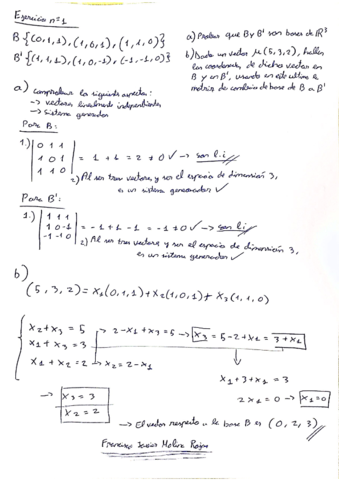 Ejercicio nº1
B {(0,1,1), (1,0,1), (1,1,0)}
B' {(1,1,1), (1,0,-1), (-1,-1,0)}
a) Probar que B y B' son bases de R³
b) Dado un vector μ(5,3,2), hallar
las coordenadas de dicho vector en
B y en B', usando en este último la
matriz de cambio de base de B a B'
a) comprobamos los siguientes aspectos:
-> vectores linealmente independientes
-> sistema generador
Para B:
1.) |0 1 1|
|1 0 1| = 1 + 1 = 2 ≠ 0 ✓ -> son l.i
|1 1 0|
2) Al ser tres vectores, y ser el espacio de dimensión 3,
es un sistema generador ✓
Para B':
1.) |1 1 1|
|1 0 -1| = -1 + 1 - 1 = -1 ≠ 0 ✓ -> son l.i
|-1 -1 0|
2) Al ser tres vectores y ser el espacio de dimensión 3,
es un sistema generador ✓
b)
(5,3,2) = x₁(0,1,1) + x₂(1,0,1) + x₃(1,1,0)
x₂ + x₃ = 5 -> 2 - x₁ + x₃ = 5 -> x₃ = 5 - 2 + x₁ = 3 + x₁
x₁ + x₃ = 3
x₁ + x₂ = 2 -> x₂ = 2 - x₁
x₁ + 3 + x₁ = 3
2x₁ = 0 -> x₁ = 0
-> x₃ = 3
x₂ = 2
-> El vector respecto a la base B es (0, 2, 3)
Francisco Javier Molina Rojas